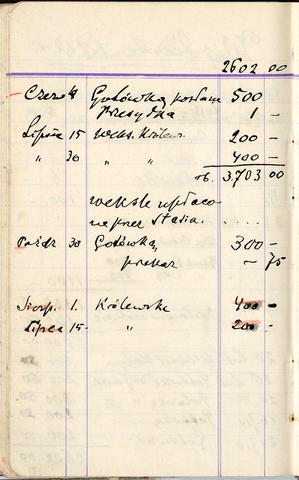 2602 00
Czerw 4 Gotówką posłano 500 –
Przesyłka 1 –
Lipiec 15 Weks. Królew. 200 –
" 30 " " 400 –
rb. 3.703 00
weksle wpłaco
ne przez Stasia. . . . . . .
Paźdz 30 Gotówką 300 –
przekaz ~ 75
Sierp. 1. Królewska 400 –
Lipiec 15 - " 200 –